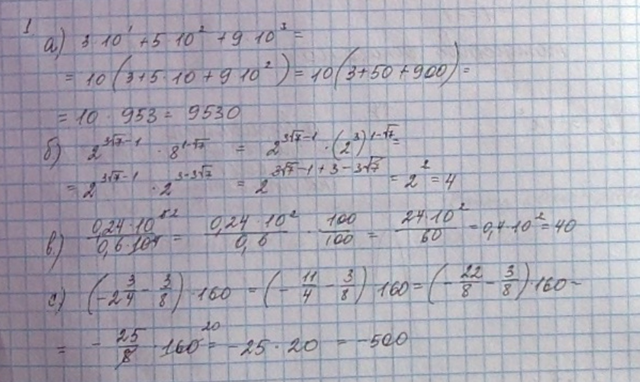 1 а) 3·10¹ + 5·10² + 9·10³ =
= 10(3+5·10+9·10²) = 10(3+50+900) =
= 10 · 953 = 9530
б) 2^(3√7-1) · 8^(1-√7) = 2^(3√7-1) · (2³)^(1-√7) =
= 2^(3√7-1) · 2^(3-3√7) = 2^(3√7-1+3-3√7) = 2² = 4
в) = (0,24·10²)/(0,6) · 100/100 = (24·10²)/60 = 0,4·10² = 40
с) (-2 3/4 - 3/8)·160 = (-11/4 - 3/8)·160 = (-22/8 - 3/8)·160 -
= -25/8 · 160 20 = -25·20 = -500